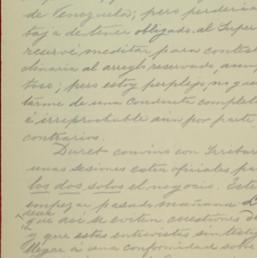 de Venezuela; pero perderia
taja de tener obligado al Super
reserv meditar para contest
dinaria al arreglo reservado, aunq
toso; pero estoy perplejo, no que
tarme de una conducta complet
é irreprobable aun por parte
contrarios.
Duret convino con Irribar
unas sesiones extra oficiales par
los dos solos el negocio. Este
empezar pasado mañana
que asi se eviten cuestiones de
y que estas entrevistas sin testig
llegar á una conformidad sobre